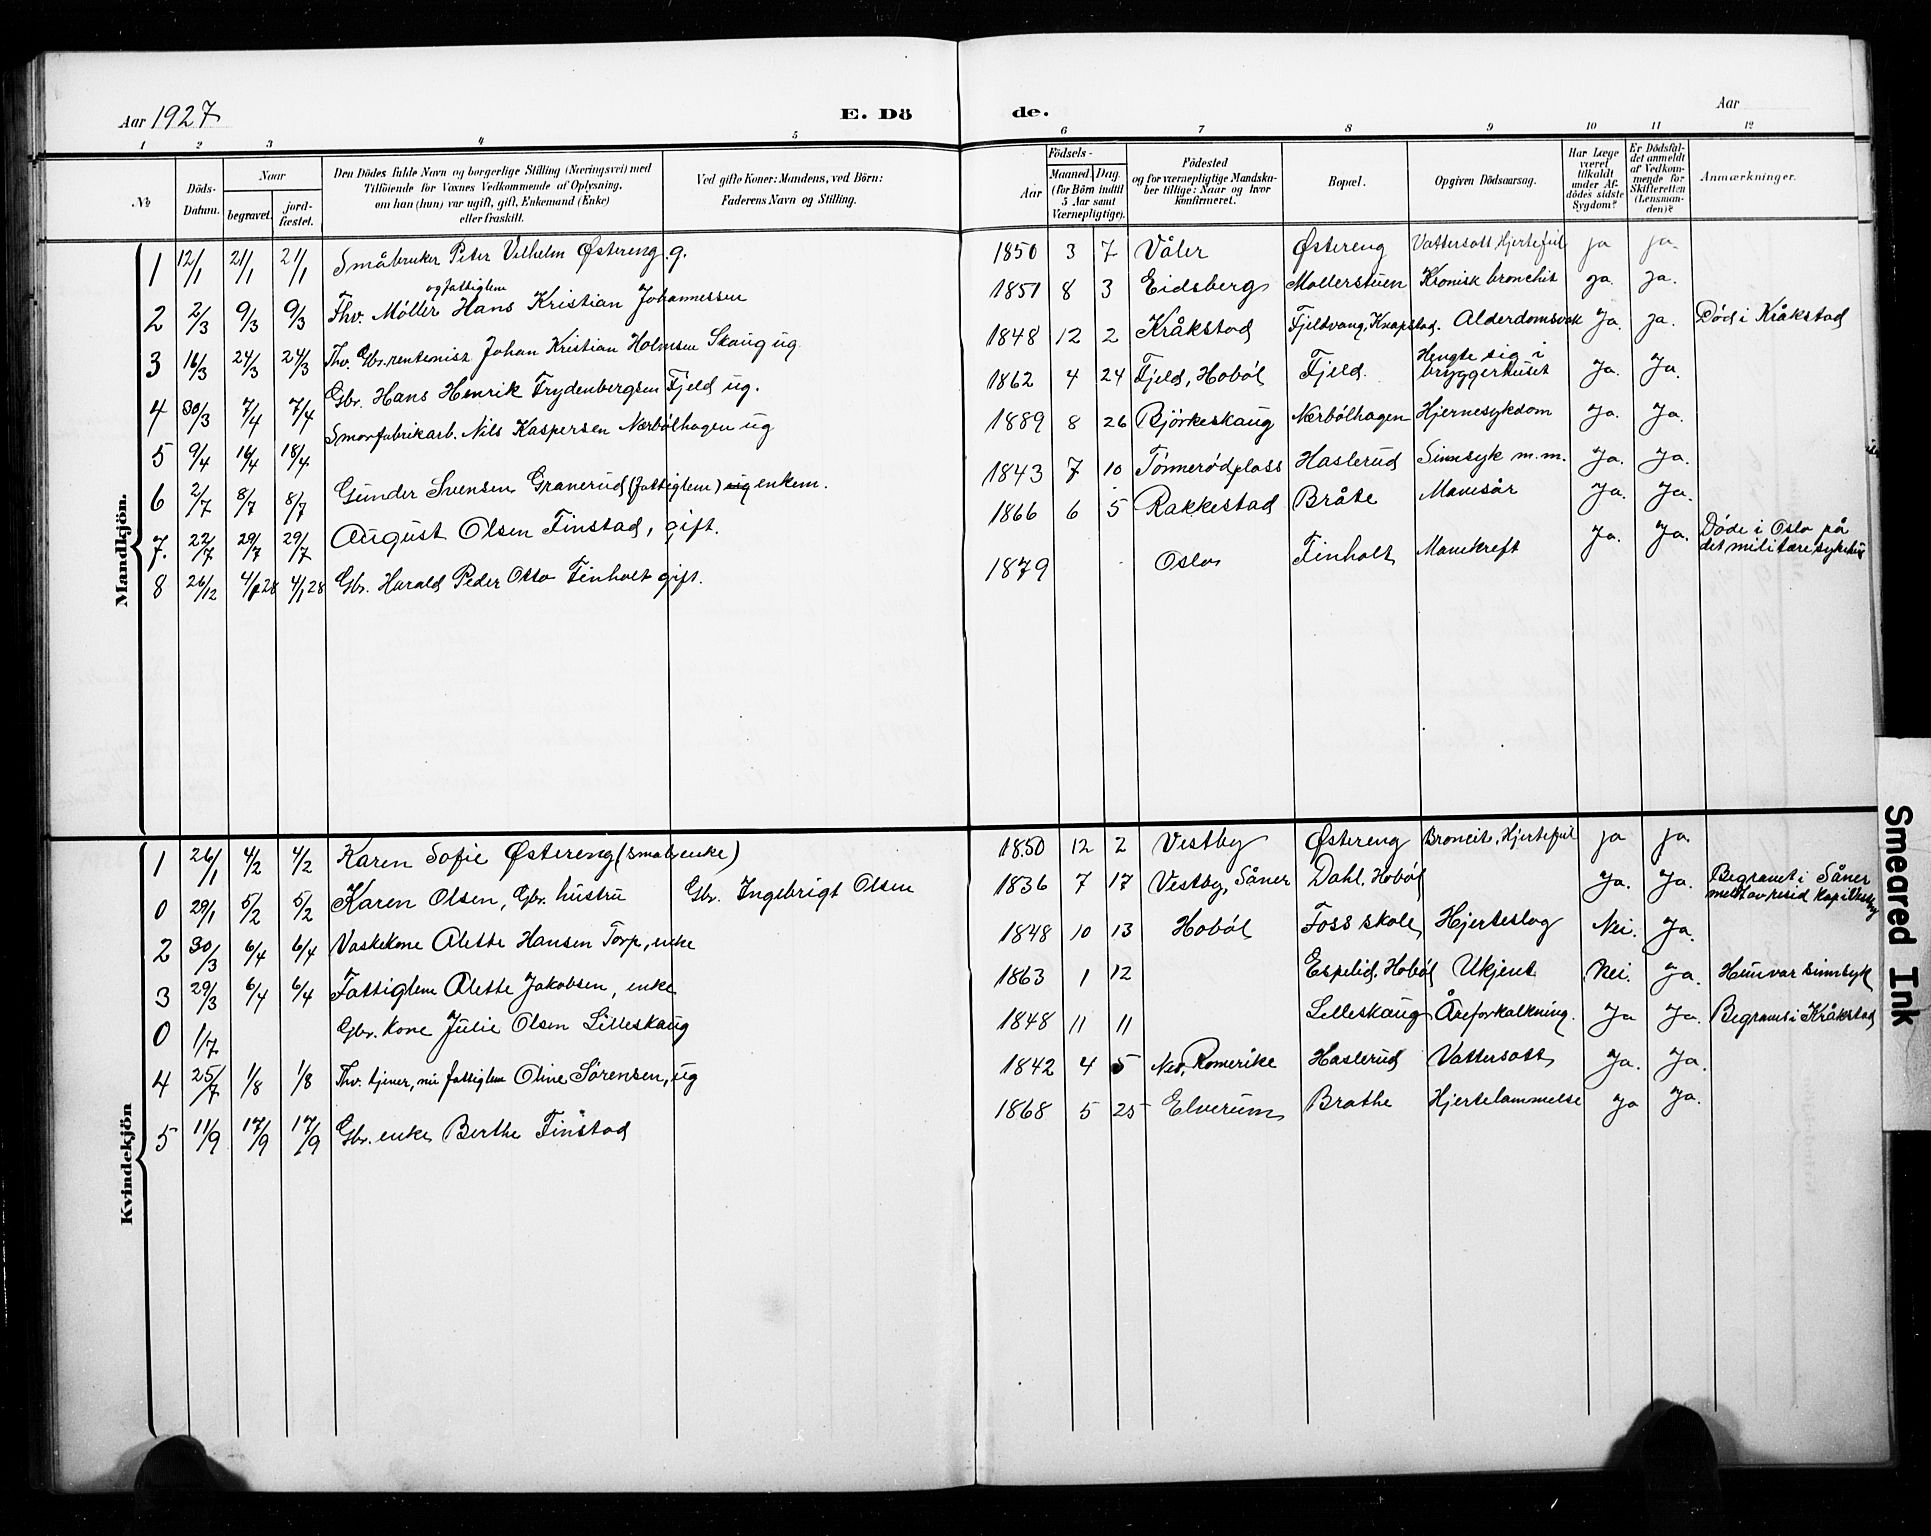 Aar 1927
E. Dö
de.
Aar
1 2 3 4 5 6 7 8 9 10 11 12
№
Döds-
Datum.
Naar
begravet.
jord-
fæstet.
Den Dödes fulde Navn og borgerlige Stilling (Næringsvei) med
Tilföiende for Voxnes Vedkommende af Oplysning,
om han (hun) var ugift, gift, Enkemand (Enke)
eller fraskilt.
Ved gifte Koner: Mandens, ved Börn:
Faderens Navn og Stilling.
Födsels-
Aar
Maaned Dag
(for Börn indtil
5 Aar samt
Værnepligtige).
Födested
og for værnepligtige Mandska-
ber tillige: Naar og hvor
konfirmeret.
Bopæl.
Opgiven Dödsaarsag.
Har Læge
været
tilkaldt
under Af-
dödes sidste
Sygdom?
Er Dödsfal-
det anmeldt
af Vedkom-
mende for
Skifteretten
(Lensman-
den)?
Anmærkninger.
Mandkjön.
1 12/1 21/1 21/1 Småbruker Peter Vilhelm Østereng g. 1850 3 7 Våler Østereng Vattersott, Hjertefeil ja ja.
og fattiglem
2 2/3 9/3 9/3 Fhv. Møller Hans Kristian Johannessen 1851 8 3 Eidsberg Møllerstuen Kronisk bronchit ja. ja.
3 16/3 24/3 24/3 Fhv. Gbr. rentenist Johan Kristian Holmsen Skaug ug 1848 12 2 Kråkstad Fjeldvang, Knapstad. Alderdomsvak Ja. ja. Død i Kråkstad
4 30/3 7/4 7/4 Gbr. Hans Henrik Frydenbergsen Fjeld ug. 1862 4 24 Fjeld, Hobøl Fjeld. Hengte sig i
bryggerhuset Ja. Ja.
5 9/4 16/4 18/4 Smørfabrikarb. Nils Kaspersen Nærbølhagen ug 1889 8 26 Bjørkeskaug Nærbølhagen Hjernesykdom Ja. Ja.
6 2/7 8/7 8/7 Gunder Svensen Granerud (fattiglem) ug enkem. 1843 7 10 Tønnerødplass Haslerud Sinnsyk m.m. Ja. Ja.
7. 22/7 29/7 29/7 August Olsen Finstad, gift. 1866 6 5 Rakkestad Bråte Mavesår Ja. Ja.
8 26/12 4/1 28 4/1 28 Gbr. Harald Peder Otto Finholt gift. 1879 Oslo Finholt Mavekreft Ja. Ja. Døde i Oslo på
det militære sykehus
Kvindekjön
1 26/1 4/2 4/2 Karen Sofie Østereng (småbr. enke) 1850 12 2 Vestby Østereng Broncit, Hjertefeil ja ja.
0 29/1 5/2 5/2 Karen Olsen, Gbr. hustru Gbr. Ingebrigt Olsen 1836 7 17 Vestby, Såner Dahl, Hobøl Ja. Ja. Begravet i Såner
meldt av resid kap
2 30/3 6/4 6/4 Vaskekone Alette Hansen Torp, enke 1848 10 13 Hobøl Foss skole Hjerteslag Nei. Ja.
3 29/3 6/4 6/4 Fattiglem Alette Jakobsen, enke 1863 1 12 Espelid, Hobøl Ukjent Nei. ja. Hun var sinnsyk
0 1/7 Gbr. kone Julie Olsen Lilleskaug 1848 11 11 Lilleskaug Åreforkalkning. Ja Ja. Begraves i Kråkstad
4 25/7 1/8 1/8 Fhv. tjener, nu fattiglem Oline Sørensen, ug 1842 4 5 Ned. Romerike Haslerud Vattersott Ja. Ja.
5 11/9 17/9 17/9 Gbr. enke Berthe Finstad 1868 5 25 Elverum Brathe Hjertelammelse Ja Ja.
Smeared Ink